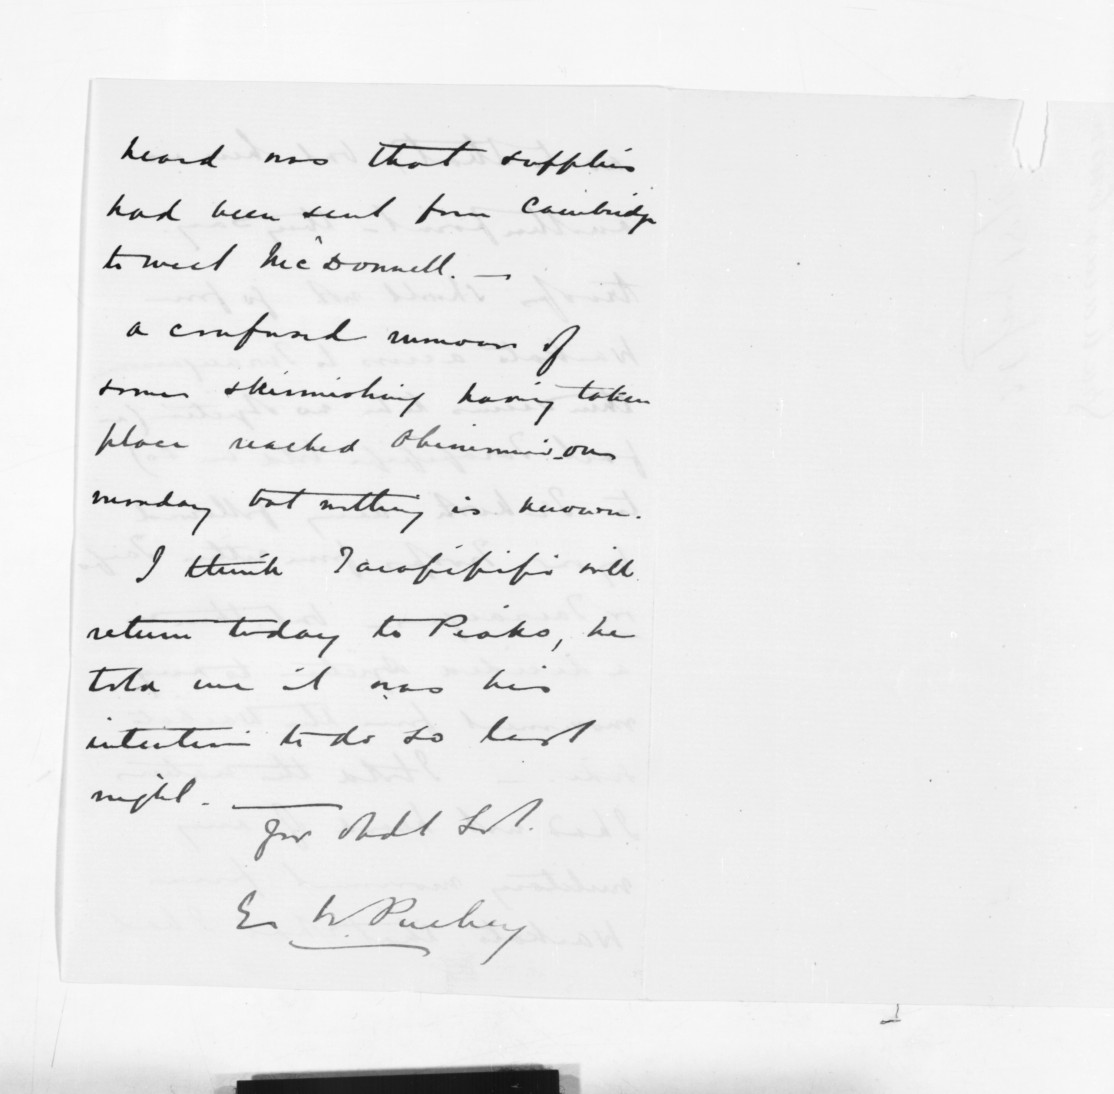 heard was that supplies
had been sent from Cambridge
to meet McDonnell. —
a confused rumour of
some skirmishing having taken
place reached Ohinemuri on
monday but nothing is known.
I think Taiapipipi will
return today to Piako, he
told me it was his
intention to do so last
night. —
Yr Obdt Svt.
E. W. Puckey